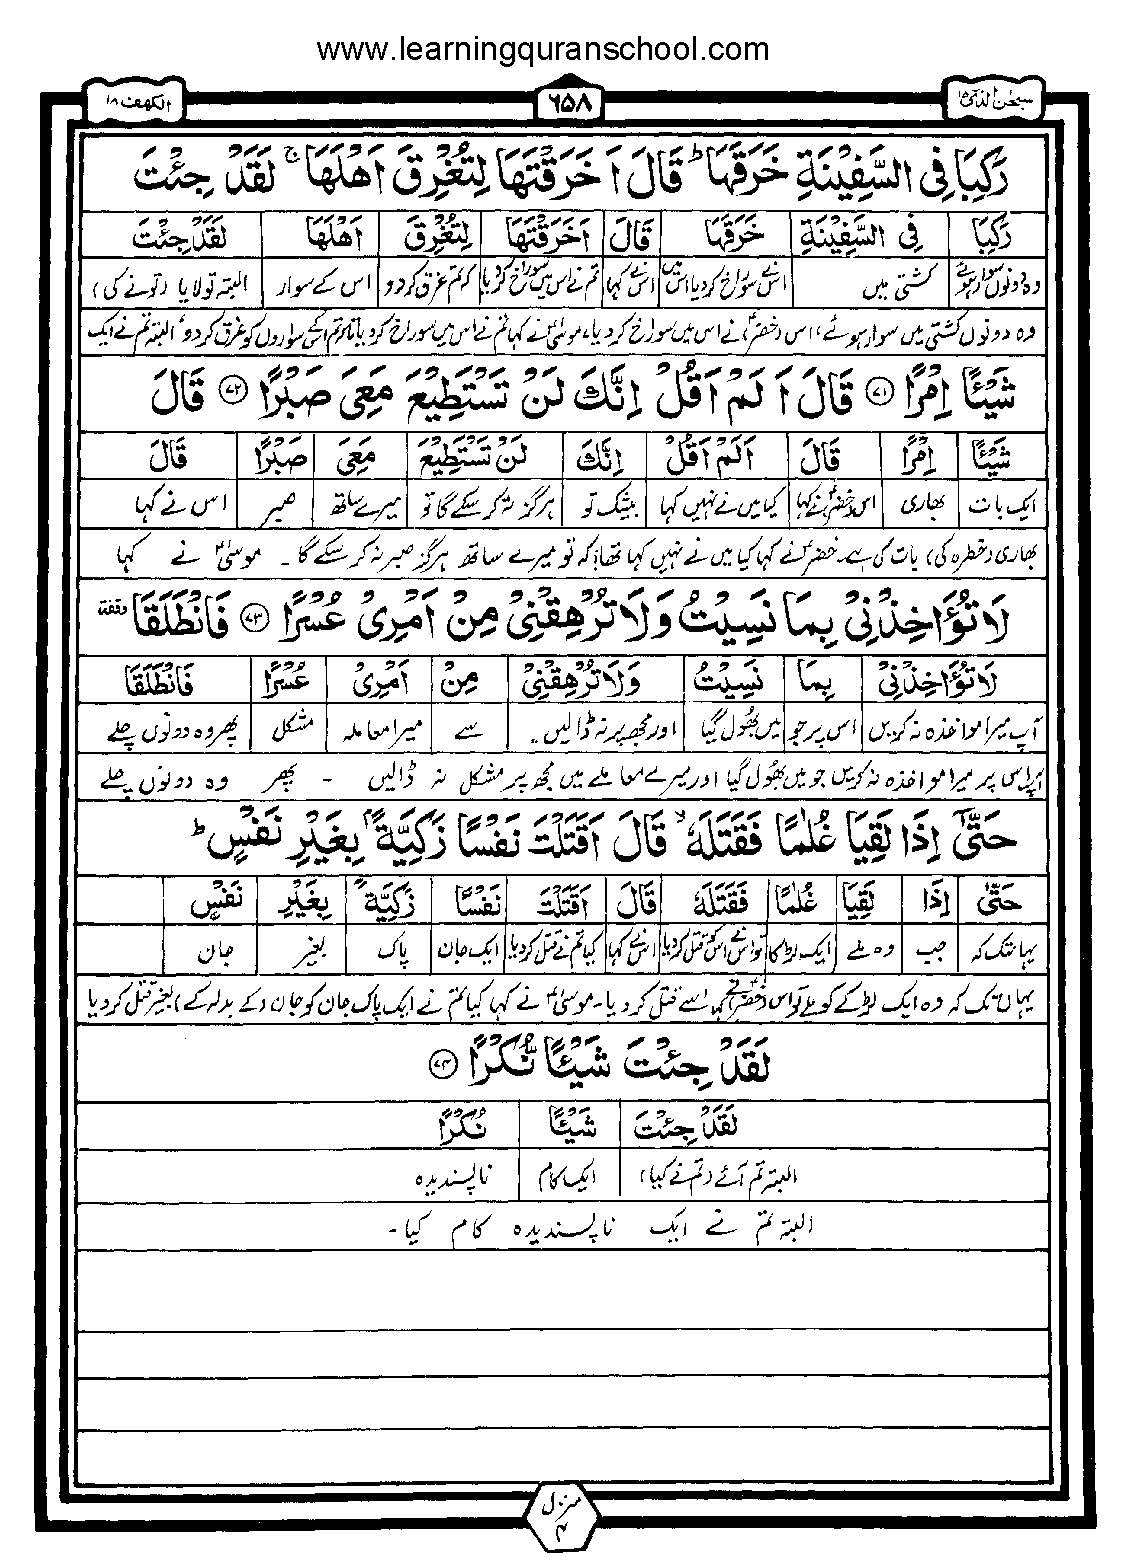 www.learningquranschool.com
سبحٰن الذی ۱۵ ۶۵۸ الکہف ۱۸
رَكِبَا فِی السَّفِیْنَةِ خَرَقَهَا ؕ قَالَ اَخَرَقْتَهَا لِتُغْرِقَ اَهْلَهَا ۚ لَقَدْ جِئْتَ
رَكِبَا فِی السَّفِیْنَةِ خَرَقَهَا قَالَ اَخَرَقْتَهَا لِتُغْرِقَ اَهْلَهَا لَقَدْ جِئْتَ
وہ دونوں سوار ہوئے کشتی میں اس نے سوراخ کردیا اس میں اس نے کہا تم نے اس میں سوراخ کردیا کہ تم غرق کردو اس کے سوار البتہ تو لایا (تونے کی)
وہ دونوں کشتی میں سوار ہوئے، اس (خضرؑ) نے اس میں سوراخ کردیا، موسیٰؑ نے کہا تم نے اس میں سوراخ کردیا تاکہ تم اسکے سواروں کو غرق کردو، البتہ تم نے ایک
شَیْـًٔا اِمْرًا ﴿۷۱﴾ قَالَ اَلَمْ اَقُلْ اِنَّكَ لَنْ تَسْتَطِیْعَ مَعِیَ صَبْرًا ﴿۷۲﴾ قَالَ
شَیْـًٔا اِمْرًا قَالَ اَلَمْ اَقُلْ اِنَّكَ لَنْ تَسْتَطِیْعَ مَعِیَ صَبْرًا قَالَ
ایک بات بھاری اس (خضرؑ) نے کہا کیا میں نے نہیں کہا بیشک تو ہرگز نہ کر سکے گا تو میرے ساتھ صبر اس نے کہا
بھاری (خطرہ کی) بات کی ہے۔ خضرؑ نے کہا کیا میں نے نہیں کہا تھا؟ کہ تو میرے ساتھ ہرگز صبر نہ کر سکے گا۔ موسیٰؑ نے کہا
لَا تُؤَاخِذْنِیْ بِمَا نَسِیْتُ وَلَا تُرْهِقْنِیْ مِنْ اَمْرِیْ عُسْرًا ﴿۷۳﴾ فَانْطَلَقَا وقفة
لَا تُؤَاخِذْنِیْ بِمَا نَسِیْتُ وَلَا تُرْهِقْنِیْ مِنْ اَمْرِیْ عُسْرًا فَانْطَلَقَا
آپ میرا مواخذہ نہ کریں اس پر جو میں بھول گیا اور مجھ پر نہ ڈالیں۔ سے میرا معاملہ مشکل پھر وہ دونوں چلے
آپ اس پر میرا مواخذہ نہ کریں جو میں بھول گیا اور میرے معاملے میں مجھ پر مشکل نہ ڈالیں - پھر وہ دونوں چلے
حَتّٰۤی اِذَا لَقِیَا غُلٰمًا فَقَتَلَهٗ ۙ قَالَ اَقَتَلْتَ نَفْسًا زَكِیَّةًۢ بِغَیْرِ نَفْسٍ ؕ
حَتّٰی اِذَا لَقِیَا غُلٰمًا فَقَتَلَهٗ قَالَ اَقَتَلْتَ نَفْسًا زَكِیَّةًۢ بِغَیْرِ نَفْسٍ
یہانتک کہ جب وہ ملے ایک لڑکا تو اس نے اسکو قتل کردیا اس نے کہا کیا تم نے قتل کردیا ایک جان پاک بغیر جان
یہاں تک کہ وہ ایک لڑکے کو ملے تو اس (خضرؑ) نے اسے قتل کردیا۔ موسیٰؑ نے کہا کیا تم نے ایک پاک جان کو جان (کے بدلہ کے) بغیر قتل کردیا
لَقَدْ جِئْتَ شَیْـًٔا نُّكْرًا ﴿۷۴﴾
لَقَدْ جِئْتَ شَیْـًٔا نُكْرًا
البتہ تم آئے (تم نے کیا) ایک کام ناپسندیدہ
البتہ تم نے ایک ناپسندیدہ کام کیا۔
منزل ۴